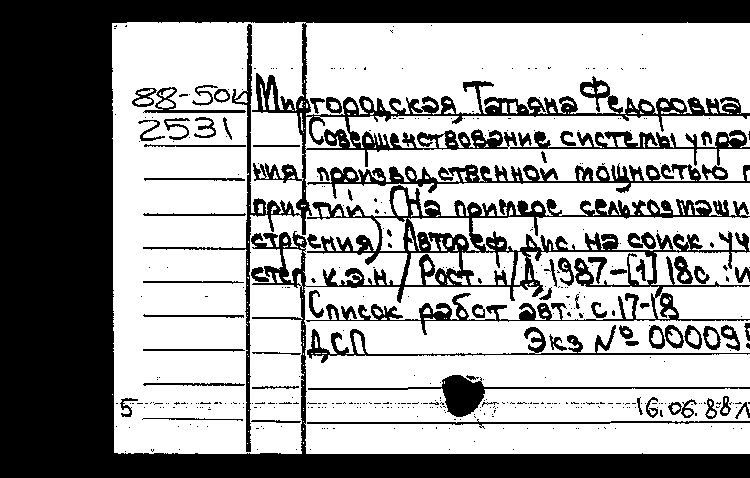 88-50к Миргородская, Татьяна Федоровна
2531 Совершенствование системы управ
ния производственной мощностью п
приятий: (На примере сельхозмаши
строения): Автореф. дис. на соиск. уч
степ. к.э.н. / Рост. н/Д, 1987.-[1] 18с. : и
Список работ авт.: с.17-18
ДСП Экз № 000095
5 16.06.88